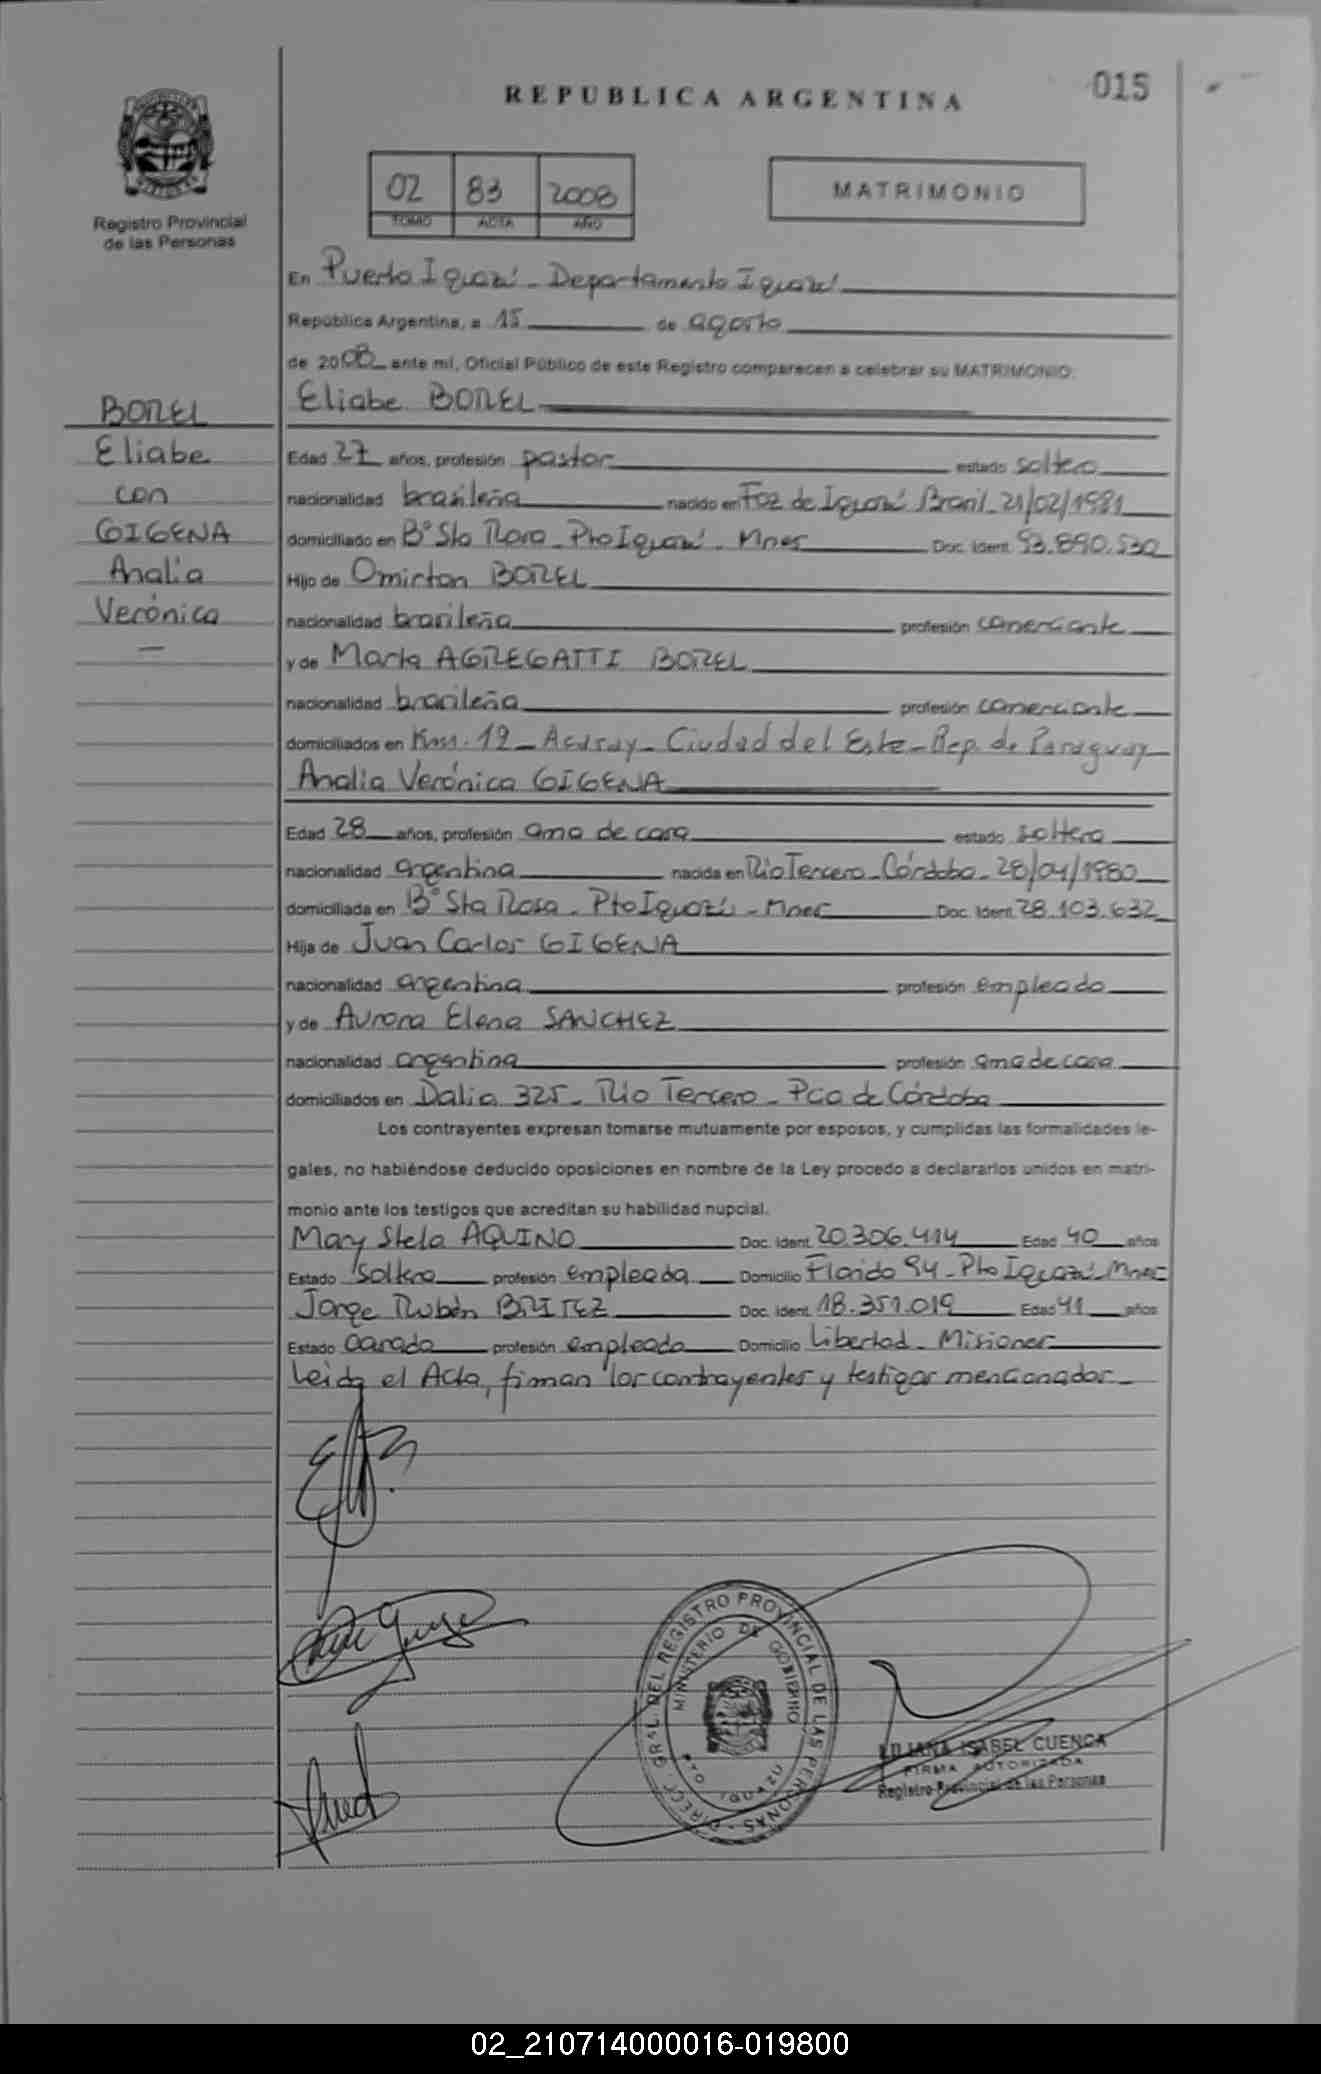 REPUBLICA ARGENTINA
015
02 83 2008
TOMO ACTA AÑO
MATRIMONIO
Registro Provincial
de las Personas
En Puerto Iguazú - Departamento Iguazú
República Argentina, a 15 de agosto
de 2008 ante mí, Oficial Público de este Registro comparecen a celebrar su MATRIMONIO:
BOREL
Eliabe
con
GIGENA
Analia
Verónica
Eliabe BOREL
Edad 27 años, profesión pastor estado soltero
nacionalidad brasileña nacido en Foz de Iguazú Brasil - 21/02/1981
domiciliado en B° Sta Rosa - Pto Iguazú - Mnes Doc. Ident. 93.890.530
Hijo de BOREL
nacionalidad brasileña profesión comerciante
y de Marta AGREGATTI BOREL
nacionalidad brasileña profesión comerciante
domiciliados en Km. 12 - Acaray - Ciudad del Este - Rep. de Paraguay
Analia Verónica GIGENA
Edad 28 años, profesión ama de casa estado soltera
nacionalidad argentina nacida en Rio Tercero - Córdoba - 28/04/1980
domiciliada en B° Sta Rosa - Pto Iguazú - Mnes Doc. Ident. 28.103.632
Hija de Juan Carlos GIGENA
nacionalidad argentina profesión empleado
y de Aurora Elena SANCHEZ
nacionalidad argentina profesión ama de casa
domiciliados en Dalia 325 - Rio Tercero - Pcia de Córdoba
Los contrayentes expresan tomarse mutuamente por esposos, y cumplidas las formalidades le-
gales, no habiéndose deducido oposiciones en nombre de la Ley procedo a declararlos unidos en matri-
monio ante los testigos que acreditan su habilidad nupcial.
Mary Stela AQUINO Doc. Ident. 20.306.414 Edad 40 años
Estado soltera profesión empleada Domicilio Florida 94 - Pto Iguazú - Mnes
Jorge Rubén BRITEZ Doc. Ident. 18.351.019 Edad 41 años
Estado casado profesión empleado Domicilio Libertad - Misiones
Leida el Acta, firman los contrayentes y testigos mencionados -
DIRECC. GRAL. DEL REGISTRO PROVINCIAL DE LAS PERSONAS
MINISTERIO DE GOBIERNO
PTO IGUAZU
LILIANA ISABEL CUENCA
FIRMA AUTORIZADA
Registro Provincial de las Personas
02_210714000016-019800